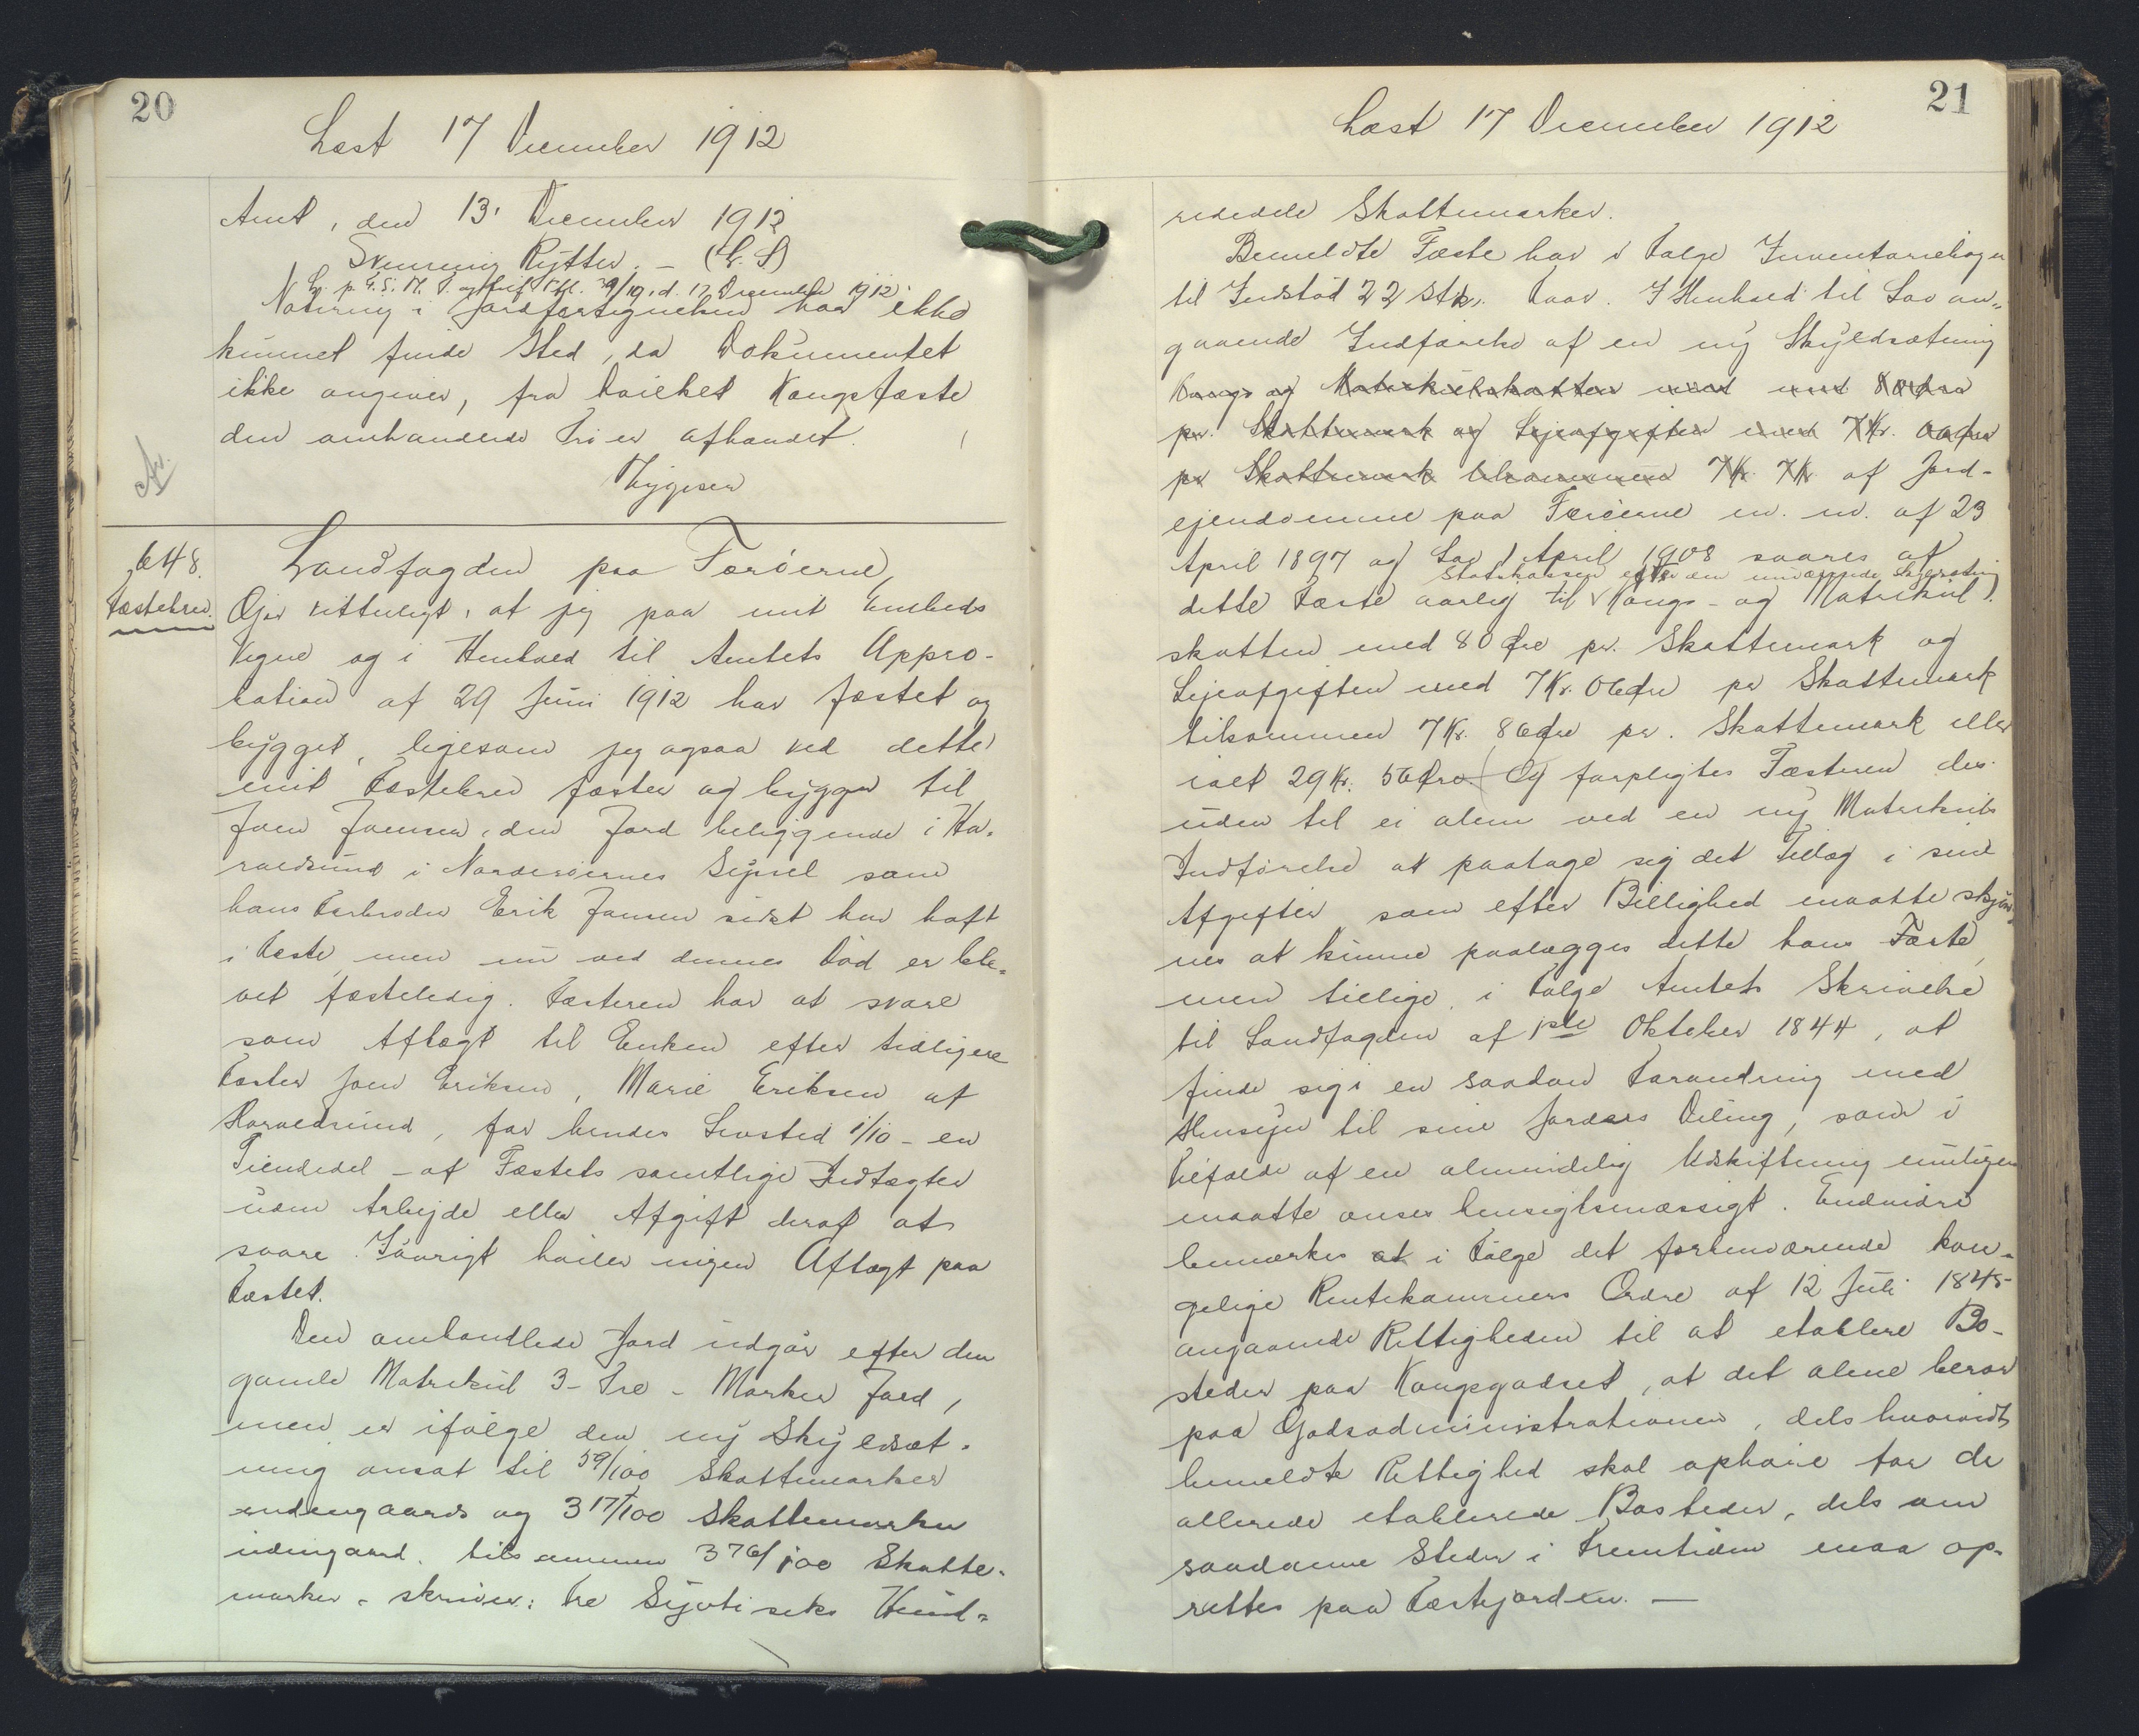 20
Læst 17 December 1912
Amt, den 13' December 1912
Svenning Rytter. – (L. S)
Notering i Jordfortegnelsen har ikke
kunnet finde Sted, da Dokumentet
ikke angiver, fra hvilket Kongsfæste
den omhandlede Trö er afhændet.
Tygesen
648.
Fæstebrev.
Landfogden paa Færöerne,
Gjør vitterligt, at jeg paa mit Embeds
Vegne og i Henhold til Amtets Appro-
bation af 29 Juni 1912 har fæstet og
bygget, ligesom jeg ogsaa ved dette
mit Fæstebrev fæster og bygger til
Joen Joensen, den Jord beliggende i Ha-
raldsund i Norderöernes Syssel som
hans Farbroder Erik Joensen sidst har haft
i Fæste, men nu ved dennes Död er ble-
vet fæsteledig. Fæsteren har at svare
som Aftægt til Enken efter tidligere
Fæster Joen Eriksen, Marie Eriksen af
Haraldsund, for hendes Levetid 1/10 – en
Tiendedel – af Fæstets samtlige Indtægter
uden Arbejde eller Afgift deraf at
svare. Iövrigt hviler ingen Aftægt paa
Fæstet.
Den omhandlede Jord udgör efter den
gamle Matrikul 3 – Tre – Marker Jord,
men er ifölge den ny Skyldsæt-
ning ansat til 59/100 Skattemarker
indengaards og 3 17/100 Skattemarker
udengaard. tilsammen 3 76/100 Skatte-
marker – skriver: tre Syvti seks Hund-
21
Læst 17 December 1912
rededele Skattemarker.
Bemeldte Fæste har i Fölge Inventariebogen
til Indstöd 22 Stk. Faar. I Henhold til Lov an-
gaaende Indförelse af en ny Skyldsætning
Kongs og Matrikulskatten med 80 Öre
pr. Skattemark og Lejeafgiften med 7 Kr. 06 Öre
pr Skattemark tilsammen 7 Kr. 7 Kr af Jord-
ejendomme paa Færöerne m. m. af 23
April 1897 og Lov 1 April 1908 svares af
Statskassen efter den nuværende Skyldsætning
dette Fæste aarlig til Kongs- og Matrikul
skatten med 80 Öre pr. Skattemark og
Lejeafgiften med 7 Kr. 06 Öre pr Skattemark
tilsammen 7 Kr. 86 Öre pr. Skattemark eller
ialt 29 Kr. 56 Öre. Og forpligtes Fæsteren des-
uden til ei alene ved en ny Matrikuls
Indförelse at paatage sig det Tillæg i sine
Afgifter som efter Billighed maatte skjön-
nes at kunne paalægges dette hans Fæste,
men tillige, i Fölge Amtets Skrivelse
til Landfogden af 1ste Oktober 1844, at
finde sig i en saadan Forandring med
Hensyn til sine Jorders Deling, som i
Tilfælde af en almindelig Udskiftning muligen
maatte anses hensigtsmæssigt. Endvidere
bemærkes at i Fölge det forhenværende kon-
gelige Rentekammers Ordre af 12 Juli 1845
angaaende Rettigheden til at etablere Bo-
steder paa Kongsgodset, at det alene beror
paa Godsadministrationen, dels hvorvidt
bemeldte Rettighed skal ophöre for de
allerede etablerede Bosteder, dels om
saadanne Steder i Fremtiden maa op-
rettes paa Fæstejorden. –